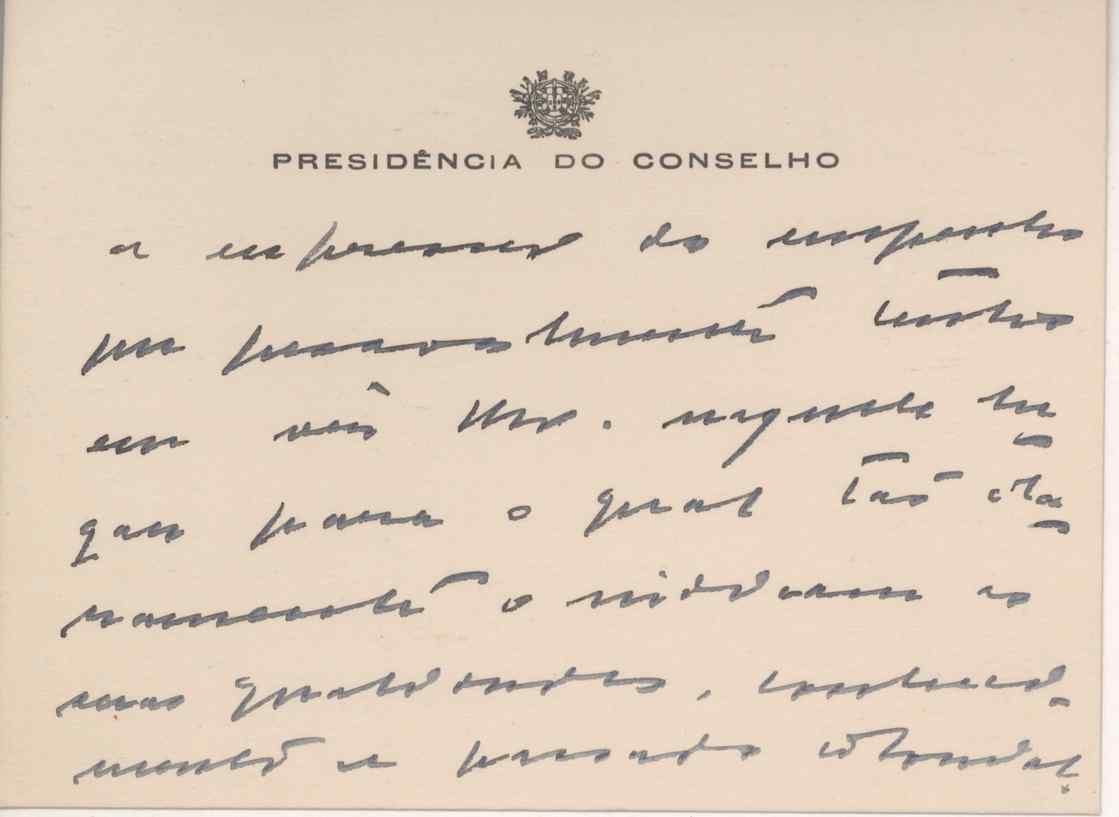 PRESIDÊNCIA DO CONSELHO
a expressão do empenho
que pessoalmente tenho
em vêr naquele lu-
gar para o qual tão cla-
ramente o indicam as
suas qualidades, conheci-
mento e passado